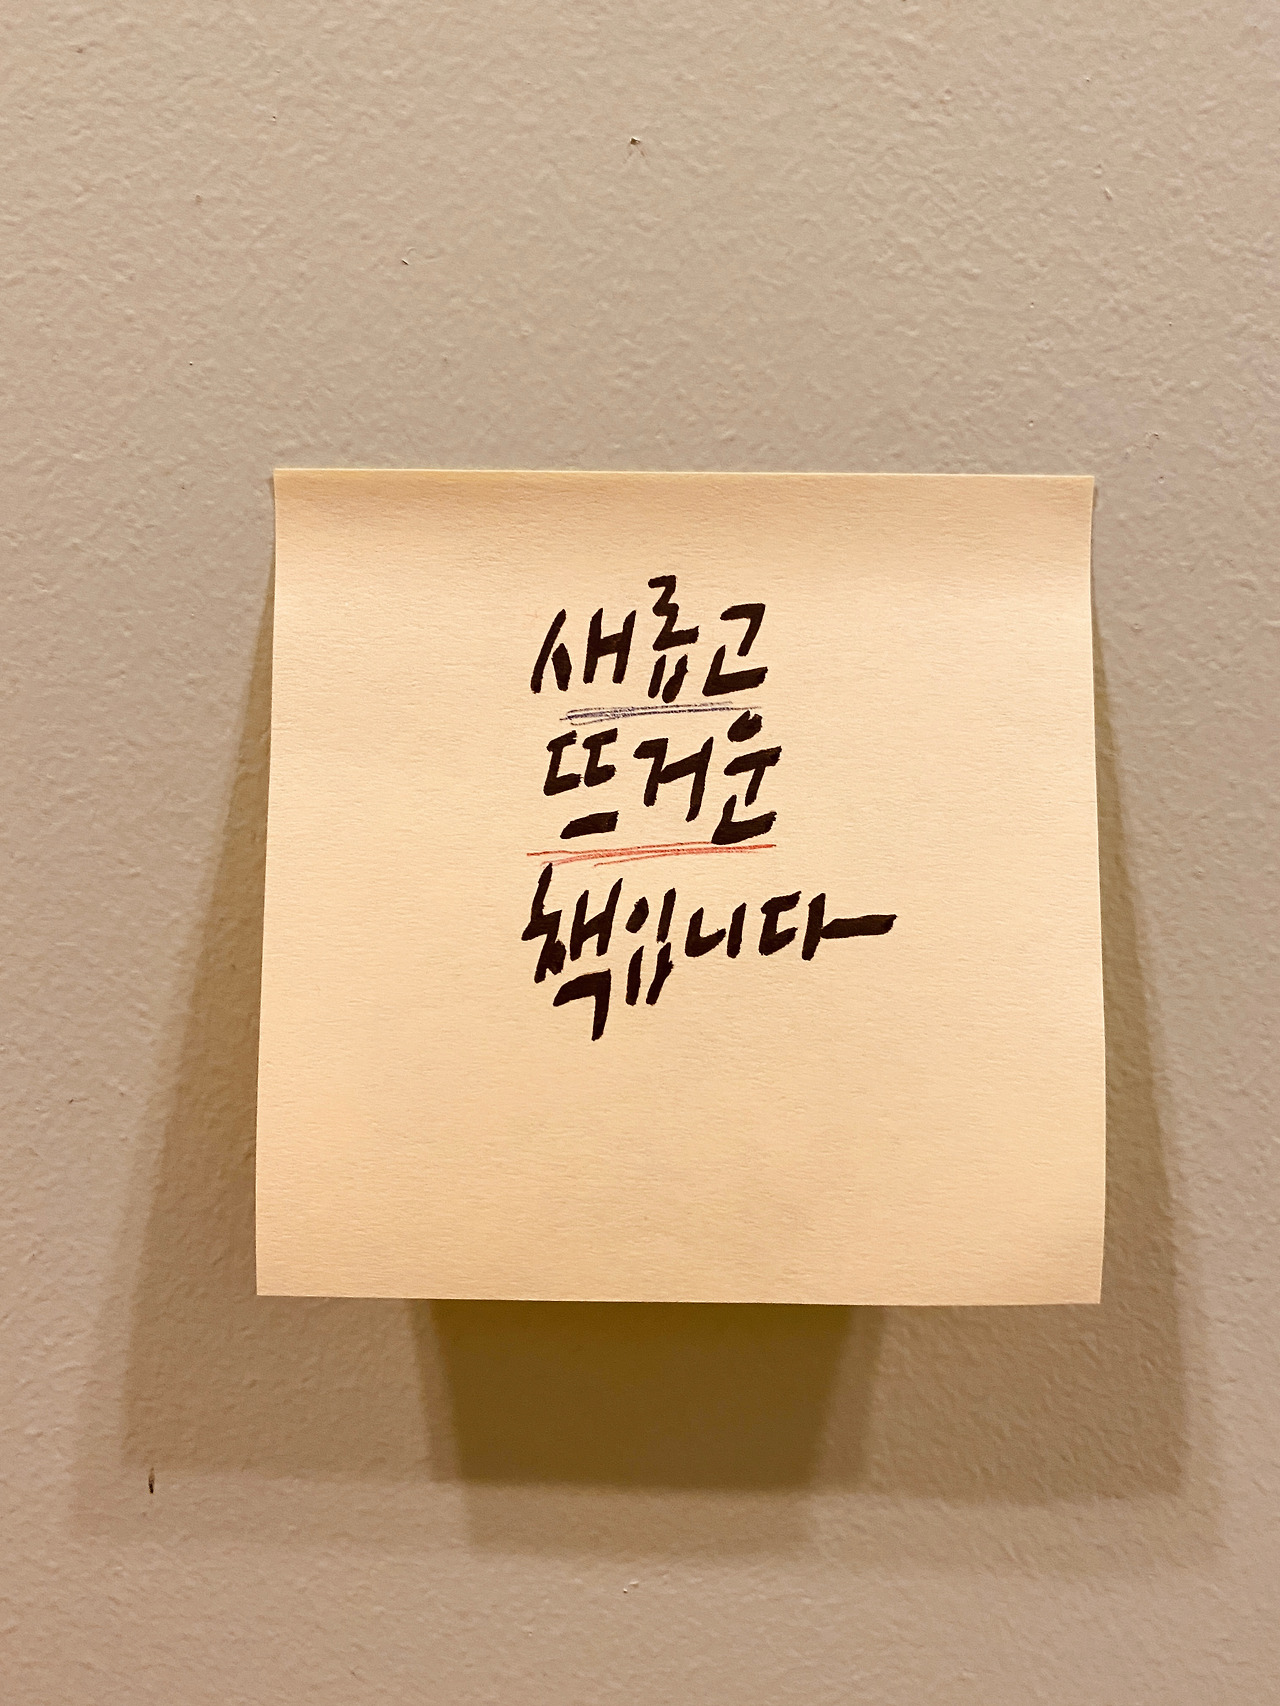 새롭고
뜨거운
책입니다